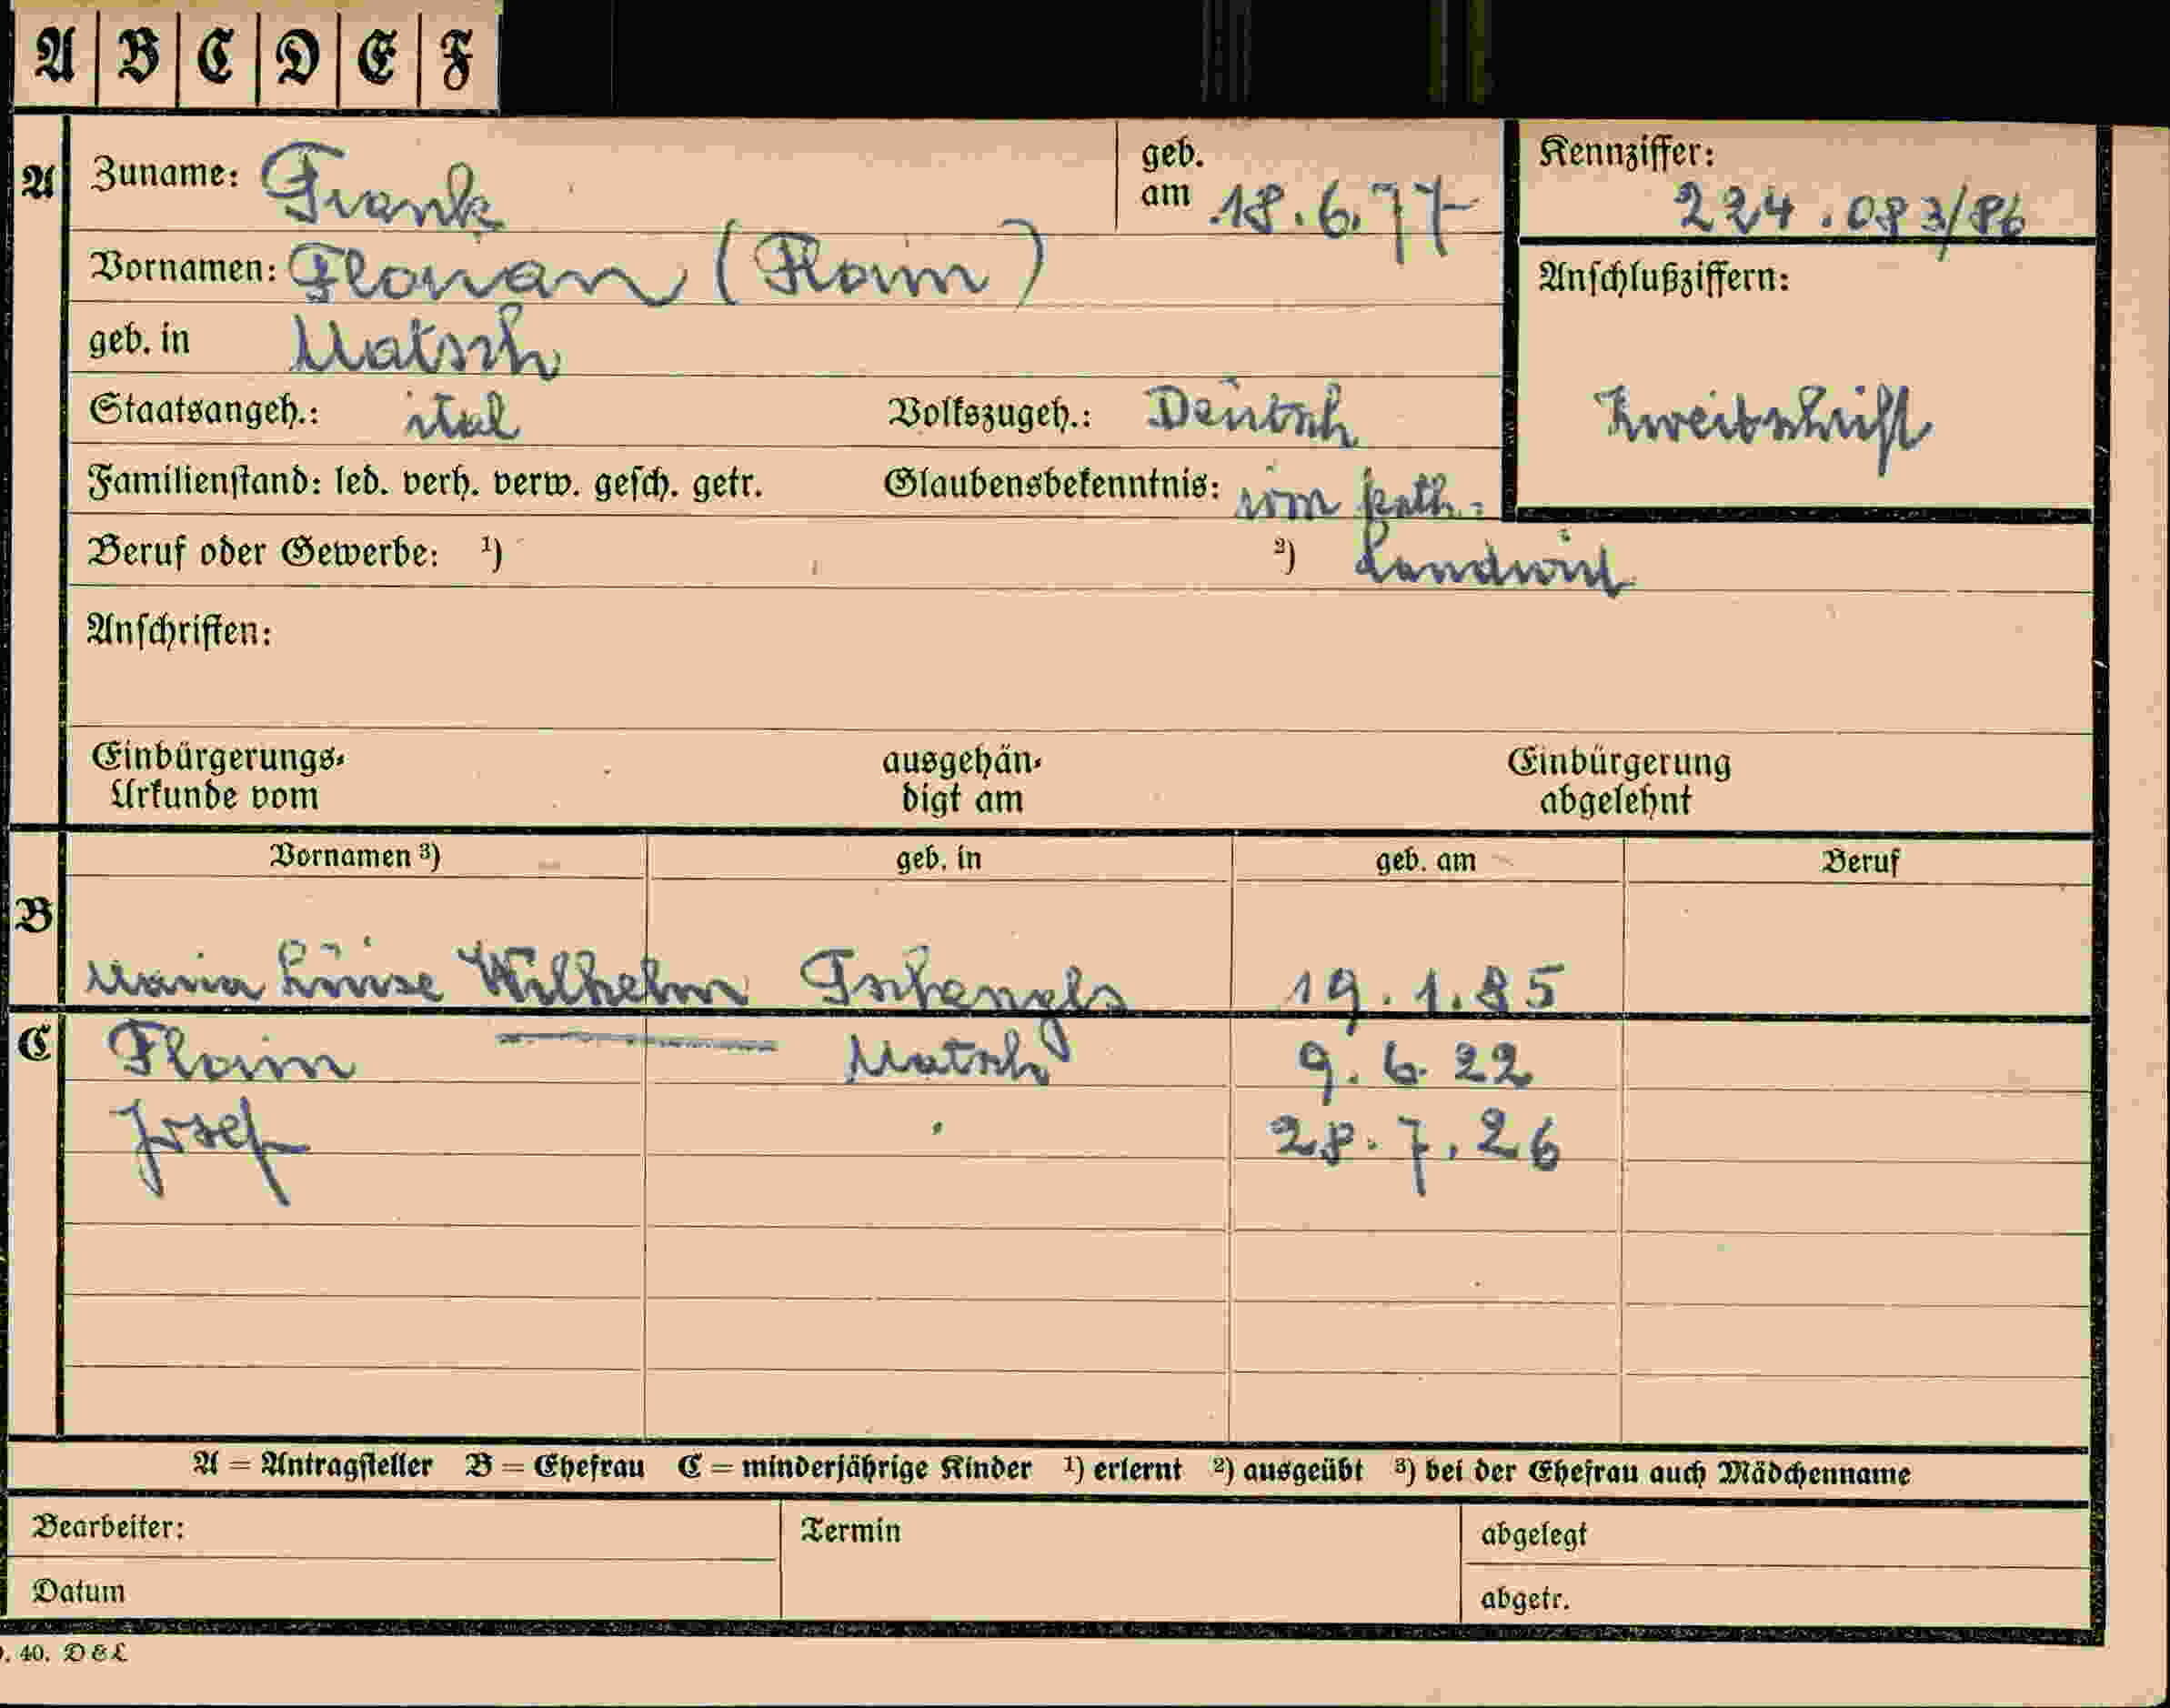 A B C D E F
A Zuname: Frank geb. am 18.6.77 Kennziffer: 224.083/86
Vornamen: Florian (Florin) Anschlußziffern:
geb. in Matsch
Staatsangeh.: ital Volkszugeh.: Deutsch Zweitschrift
Familienstand: led. verh. verw. gesch. getr. Glaubensbekenntnis: röm kath.
Beruf oder Gewerbe: ¹) ²) Landwirt
Anschriften:
Einbürgerungs- ausgehän- Einbürgerung
Urkunde vom digt am abgelehnt
Vornamen ³) geb. in geb. am Beruf
B
Maria Luise Wilhelm Tschengls 19.1.85
C Florin Matsch 9.6.22
Josef 28.7.26
A = Antragsteller B = Ehefrau C = minderjährige Kinder ¹) erlernt ²) ausgeübt ³) bei der Ehefrau auch Mädchenname
Bearbeiter: Termin abgelegt
Datum abgetr.
. 40. D & L